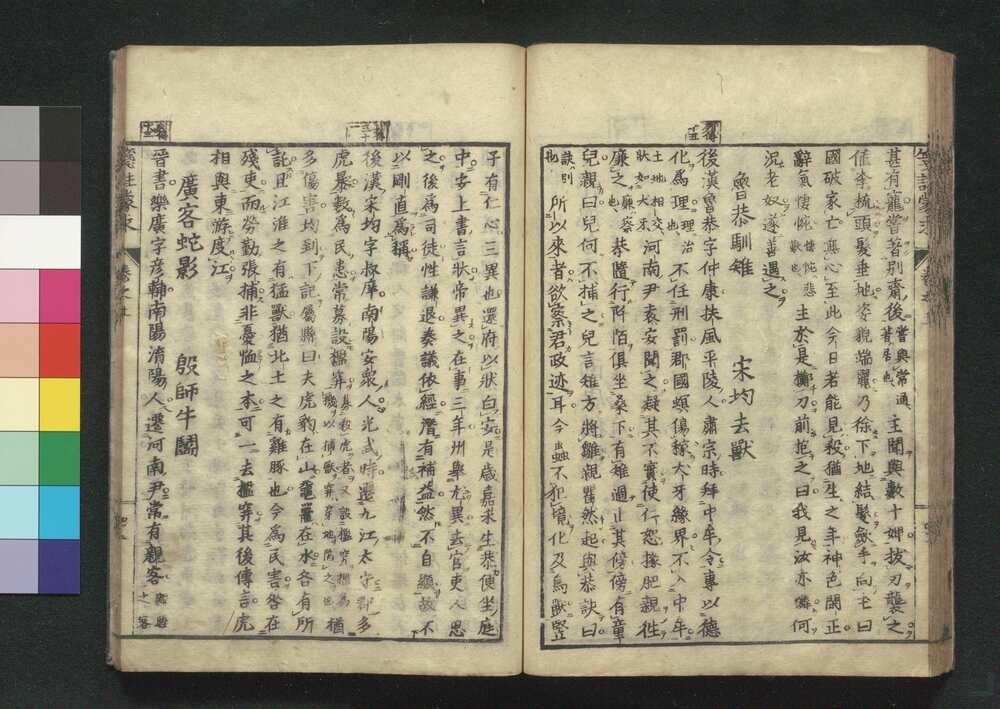 甚有寵嘗著別齋後嘗與常通著居也主聞與數十婢拔刃襲之
値李梳頭髮垂地姿貌端麗乃徐下地結髮斂手向主曰
國破家亡無心至此今日若能見殺猶生之年神色閑正
辭氣悽惋主於是擲刀前抱之曰我見汝亦憐何
況老奴遂善遇之
魯恭馴雉 宋均去獸
後漢魯恭字仲康扶風平陵人肅宗時拜中牟令專以德
化爲理理治也不任刑罰郡國螟傷稼犬牙緣界不入中牟
土地相交狀如犬牙河南尹袁安聞之疑其不實使仁恕掾肥親往
廉之廉察也恭隨行阡陌俱坐桑下有雉過止其傍傍有童
兒親曰兒何不捕之兒言雉方將雛親瞿然起與恭訣曰
訣別也所以來者欲案君政迹耳今蟲不犯境化及鳥獸豎
子有仁心三異也還府以狀白安是歲嘉禾生恭便坐庭
中安上書言狀帝異之在事三年州舉尤異去官吏人思
之後爲司徒性謙退奏議依經潛有補益然不自顯故不
以剛直爲稱
後漢宋均字叔庠南陽安衆人光武時遷九江太守郡多
虎暴數爲民患常募設檻穽猶
多傷害均到下記屬縣曰夫虎豹在山黿鼉在水各有所
託且江淮之有猛獸猶北土之有雞豚也今爲民害咎在
殘吏而勞勤張捕非憂恤之本可一去檻穽其後傳言虎
相與東游度江
廣客蛇影 殷師牛鬪
晉書樂廣字彦輔南陽淯陽人遷河南尹常有親客